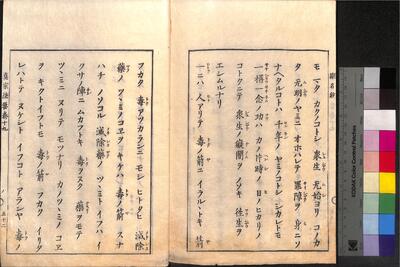 モマタカクノコトシ衆生无始ヨリコノカ
タ无明ノヤミニオホハレテ罪障ヲ身ニソ
ナヘタルコトハ千年ノヤミノコトシシカレトモ
一稱一念ノ功ハカノ片時ノ日ノヒカリノ
コトクニテ衆生ノ癡闇ヲノソキ往生ヲ
エシムルナリ
一ニハ人アリテ毒ノ箭ニイラルヽトキ箭
フカク毒アツカランニモシヒトタヒ滅除
藥ノツヽミノコヱヲキケハ毒ノ箭スナ
ハチノソコル滅除藥ノツヽミトイフハイ
クサノ陣ニムカフトキ毒ヲヌク藥ヲモテ
ツヽミニヌリテモツナリカノツヽミノコヱ
ヲキクトイフトモ毒ノ箭フカクイリタ
レハトテヌケシトイフコトアランヤ毒ノ
眞宗法要卷十九
KODAK Color Control Patches